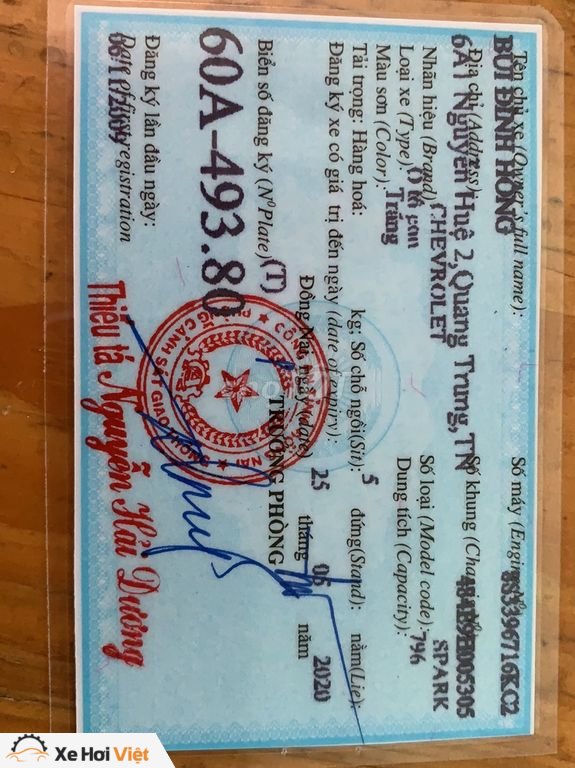 Tên chủ xe (Owner's full name):
BÙI ĐÌNH HỒNG
Số máy (Engine
396716KC2
Địa chỉ (Address)
6A1 Nguyễn Huệ 2,Quang Trung,TN
Số khung (Chassis
005305
Nhãn hiệu (Brand) CHEVROLET
Số loại (Model code): SPARK
Loại xe (Type) con
Dung tích (Capacity): 796
Màu sơn (Color): Trắng
Tải trọng: Hàng hoá: kg: Số chỗ ngồi(Sit): 5 đứng(Stand): nằm(Lie):
Đăng ký xe có giá trị đến ngày (date of expiry):
Đồng Nai, ngày (date) 25 tháng 05 năm 2020
Biển số đăng ký (N° Plate) (T)
TRƯỞNG PHÒNG
60A-493.80
Đăng ký lần đầu ngày:
Date of first registration
Thiếu tá Nguyễn Hải Dương
Xe Hơi Việt